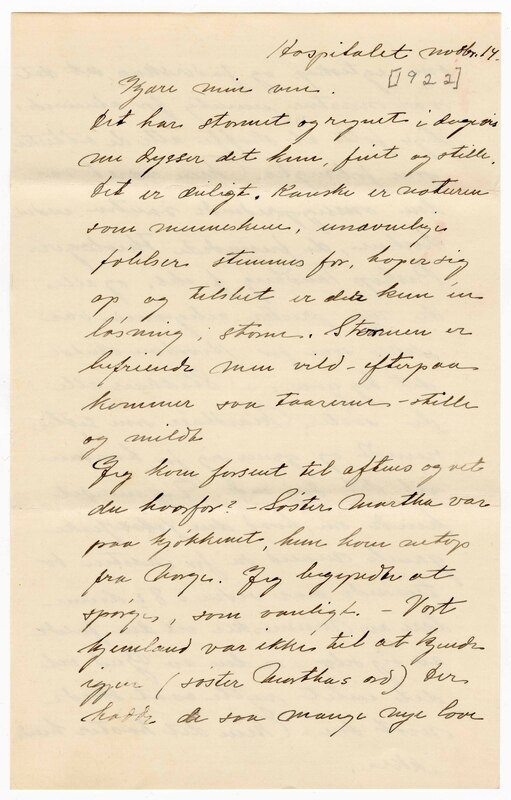 Hospitalet novbr. 14.
[1922]
Kjære min ven.
Det har stormet og regnet i dagevis
nu drysser det kun, fint og stille.
Det er deiligt. Kanske er naturen
som menneskene, unavnlige
følelser stemmes for, hoper sig
op og tilslut er der kun en
løsning, storm. Stormen er
befriende men vild - efterpaa
kommer saa taarerne - stille
og mildt
Jeg kom forsent til aftens og vet
du hvorfor? - Søster Martha var
paa kjøkkenet, hun kom netop
fra Norge. Jeg begyndte at
spørge, som vanligt. - Vort
hjemland var ikke til at kjende
igjen (søster Marthas ord) Der
hadde de saa mange nye love